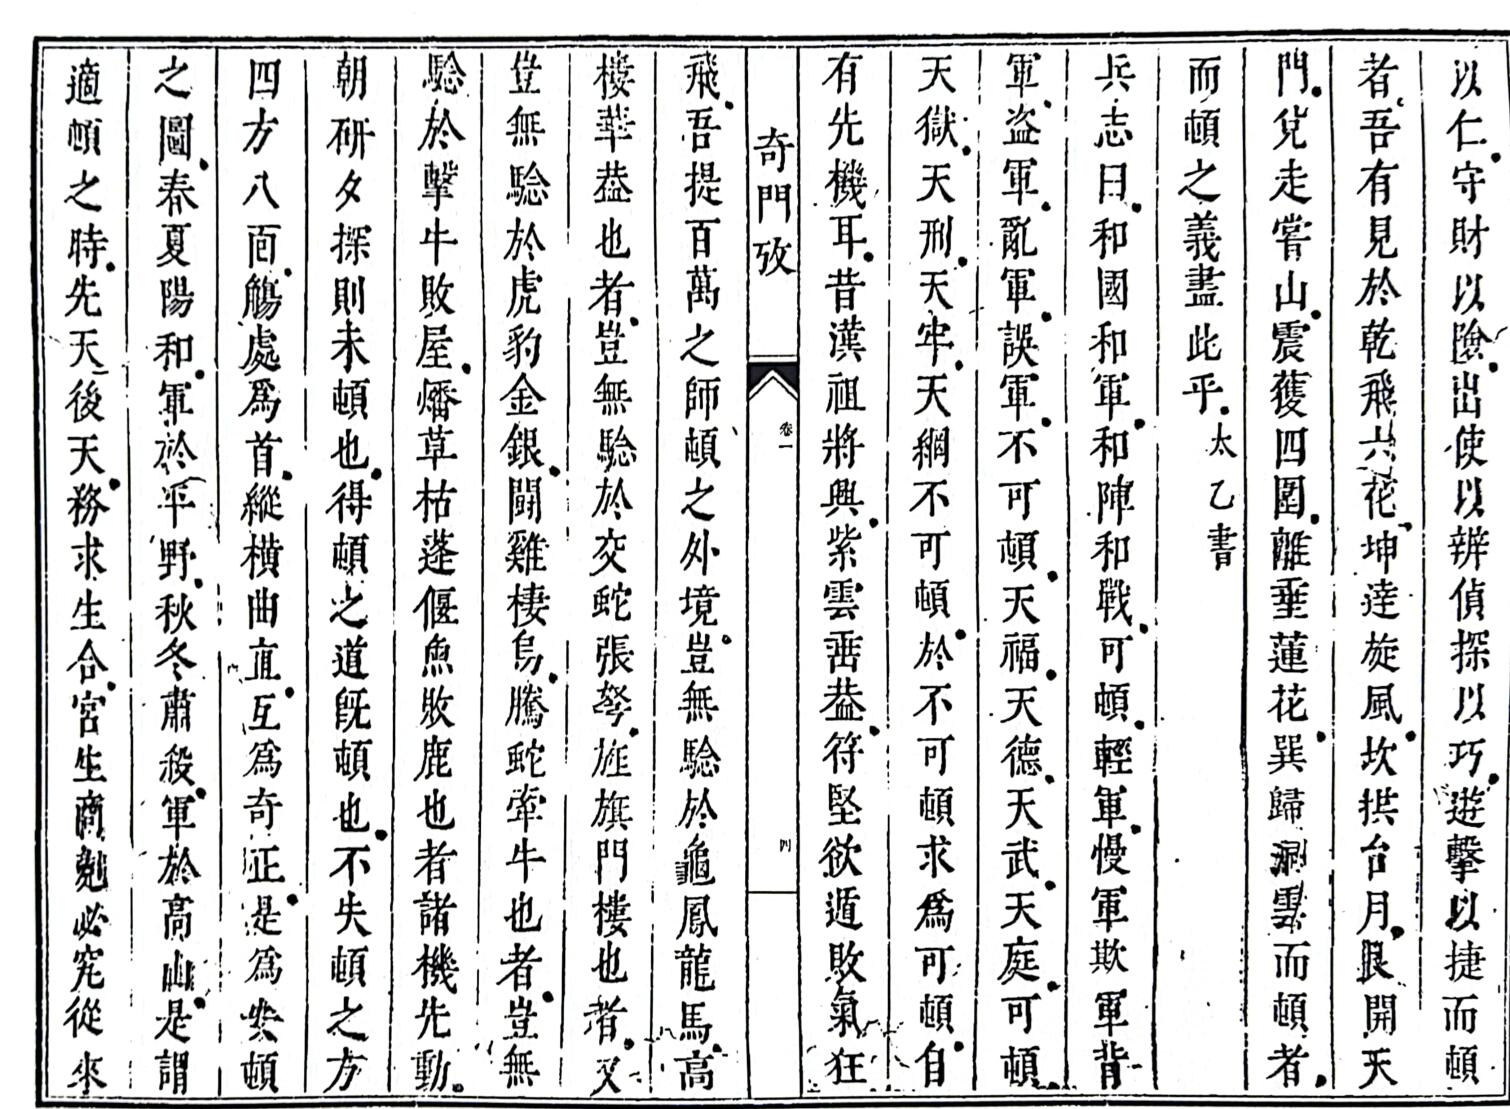 以仁守財以險出使以辨偵探以巧遊擊以捷而頓
者吾有見於乾飛六花坤達旋風坎拱台月艮開天
門兌走嘗山震獲四圍離垂蓮花巽歸洞雲而頓者
而頓之義盡此乎太乙書
兵志曰和國和軍和陣和戰可頓輕軍慢軍欺軍背
軍盜軍亂軍誤軍不可頓天福天德天武天庭可頓
天獄天刑天牢天網不可頓於不可頓求爲可頓自
有先機耳昔漢祖將興紫雲垂葢符堅欲遁敗氣狂
奇門攷
卷一
四
飛吾提百萬之師頓之外境豈無驗於龜鳳龍馬高
樓華葢也者豈無驗於交蛇張弩旌旗門樓也者又
豈無驗於虎豹金銀鬭雞棲烏騰蛇牽牛也者豈無
驗於擊牛敗屋燔草枯蓬偃魚敗鹿也者諸機先動
朝研夕探則未頓也得頓之道旣頓也不失頓之方
四方八面觸處爲首縱橫曲直互爲奇正是爲安頓
之圖春夏陽和軍於平野秋冬肅殺軍於高山是謂
適頓之時先天後天務求生合宮生商尅必究從來